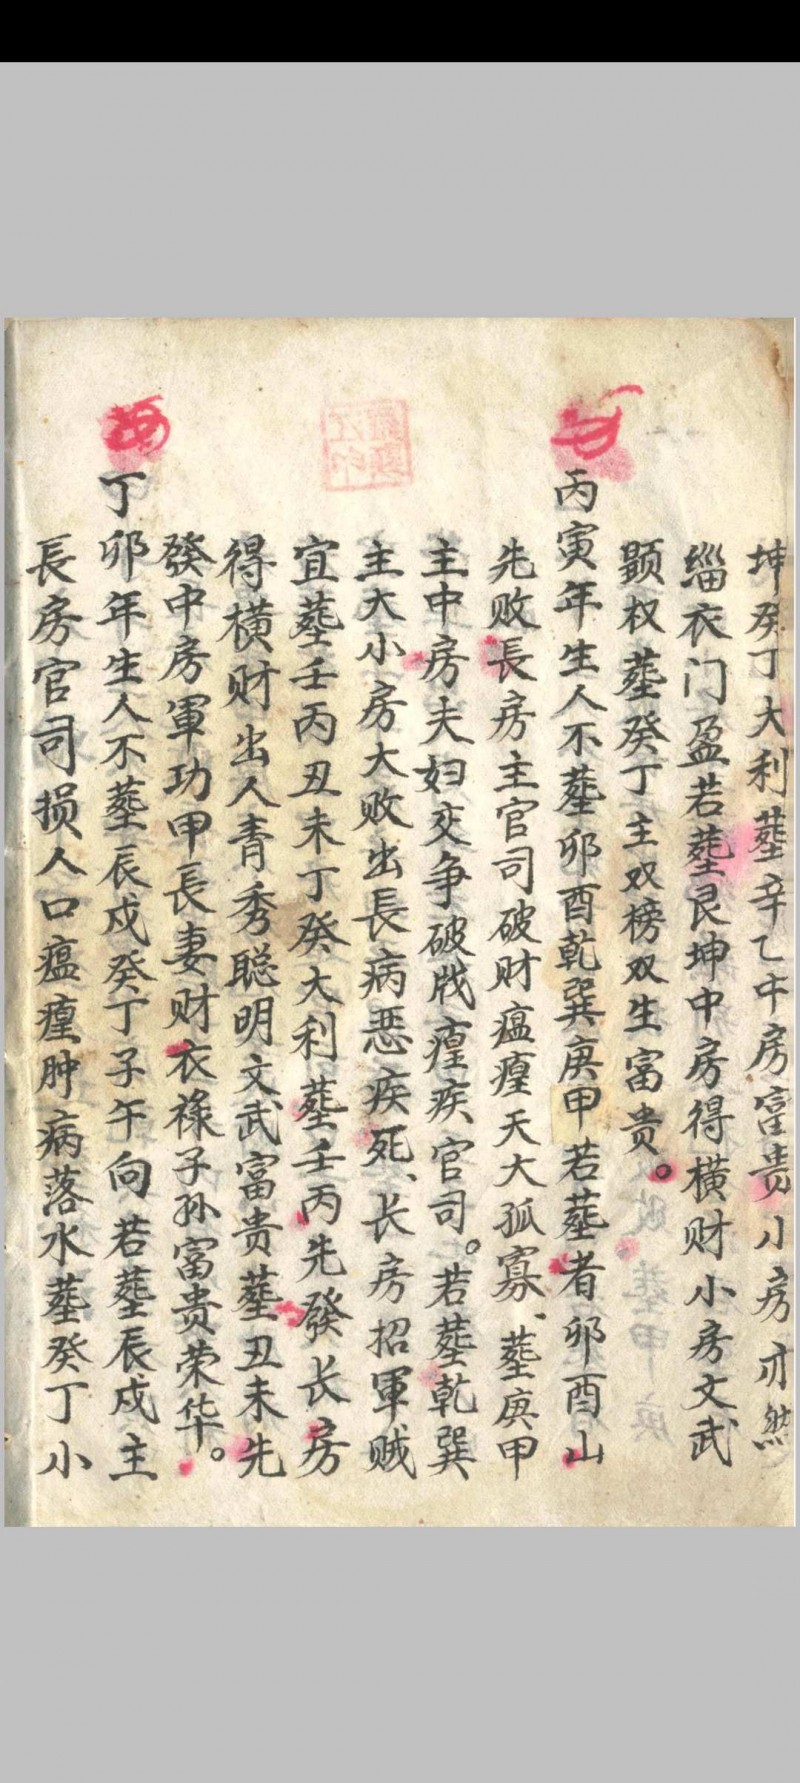 坤癸丁大利塟辛乙中房富贵小房亦然
緇衣门盈若塟艮坤中房得横财小房文武
顕权塟癸丁主双榜双生富贵。
丙寅年生人不塟卯酉乾巽庚甲若塟者卯酉山
先败長房主官司破财瘟㾮天大孤寡、塟庚甲
主中房夫妇交争破戝㾮疾官司。若塟乾巽
主大小房大败出長病恶疾死、长房招軍贼
宜塟壬丙丑未丁癸大利塟壬丙先發长房
得横财出人青秀聪明文武富贵塟丑未先
發中房軍功甲長妻财衣祿子孙富贵荣华。
丁卯年生人不塟辰戍癸丁子午向若塟辰戍主
長房官司损人口瘟㾮肿病落水塟癸丁小